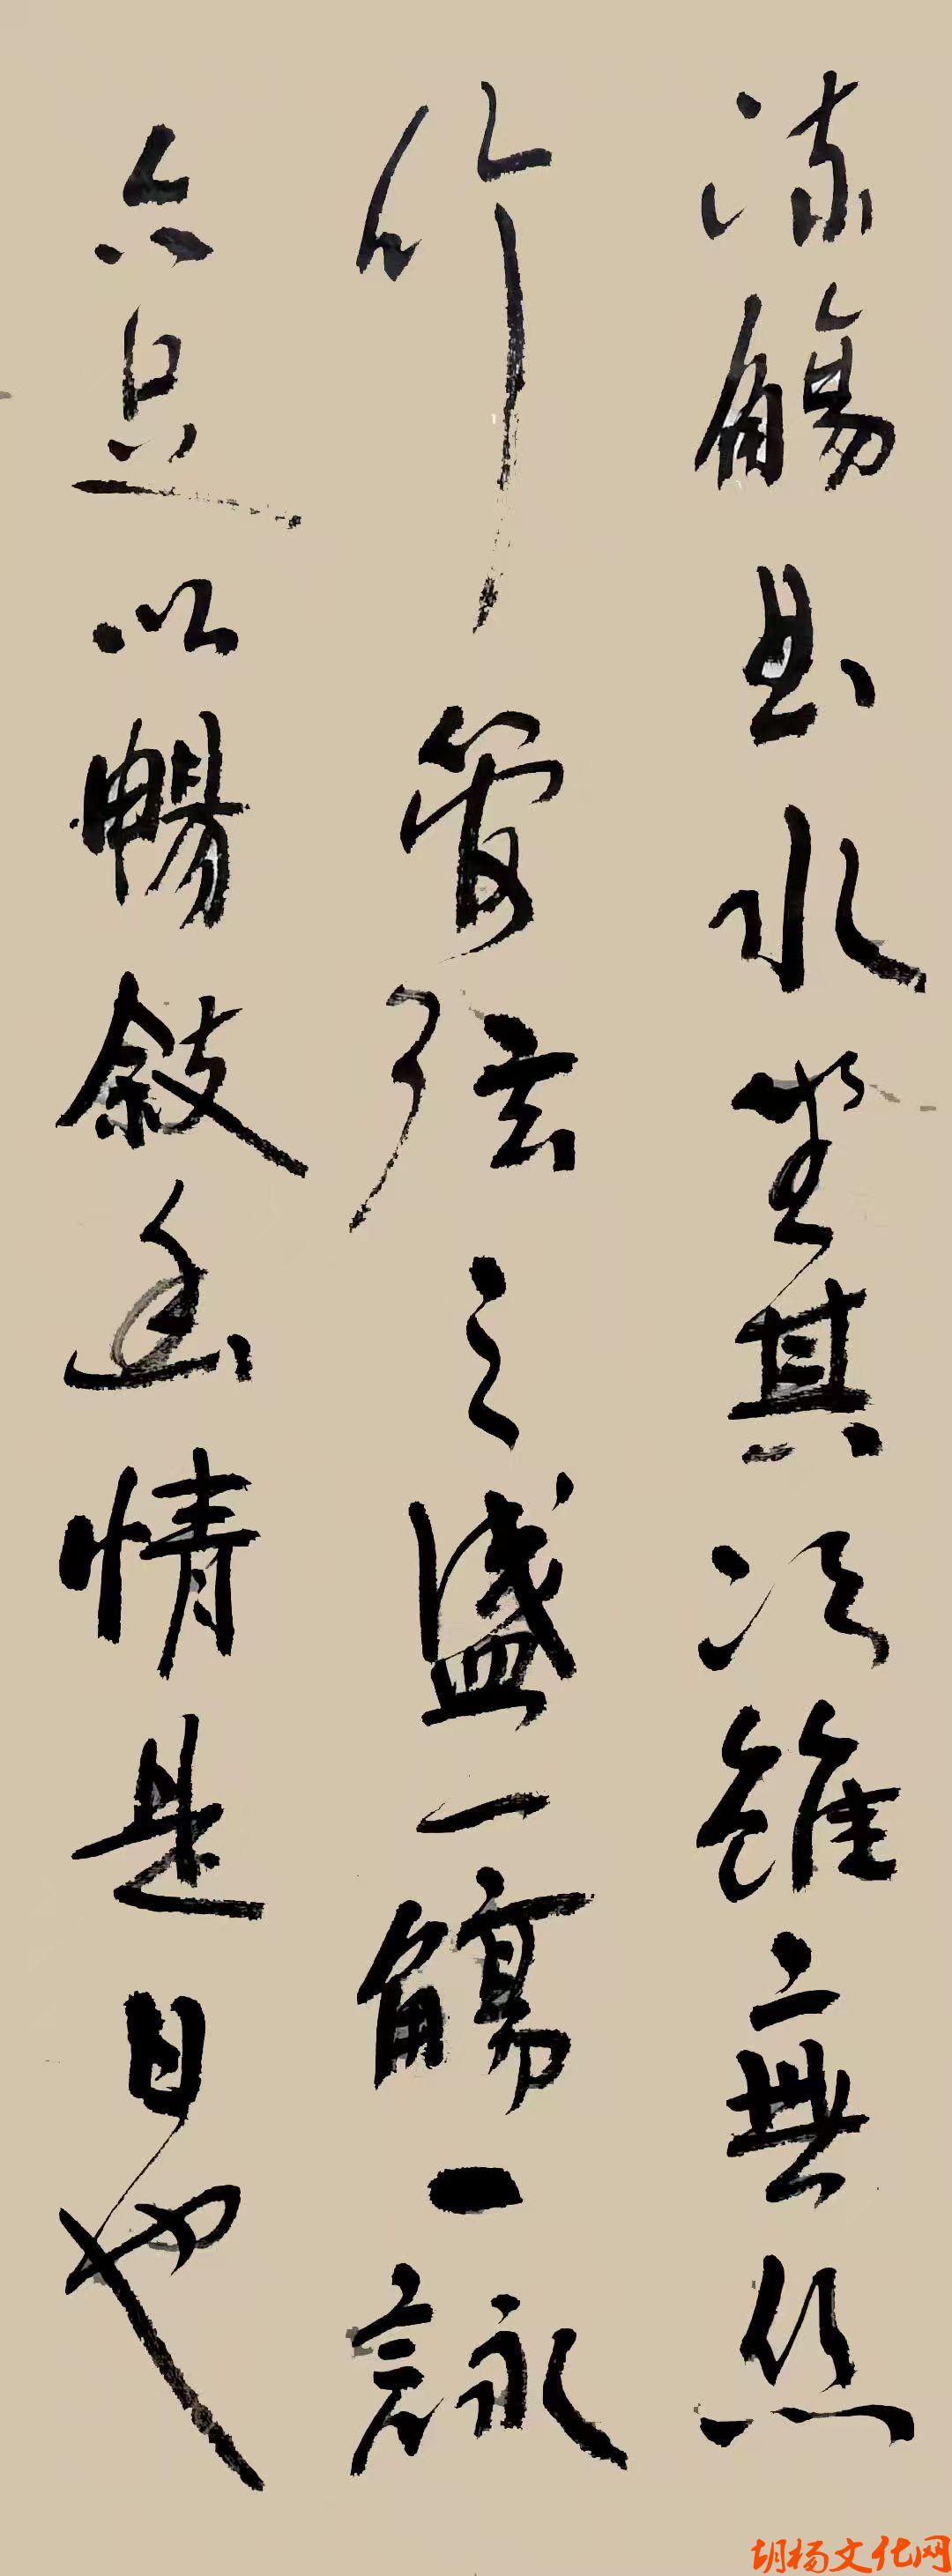 流觴曲水坐其次雖無絲
竹管弦之盛一觴一詠
亦足以暢敘幽情是日也
胡杨文化网